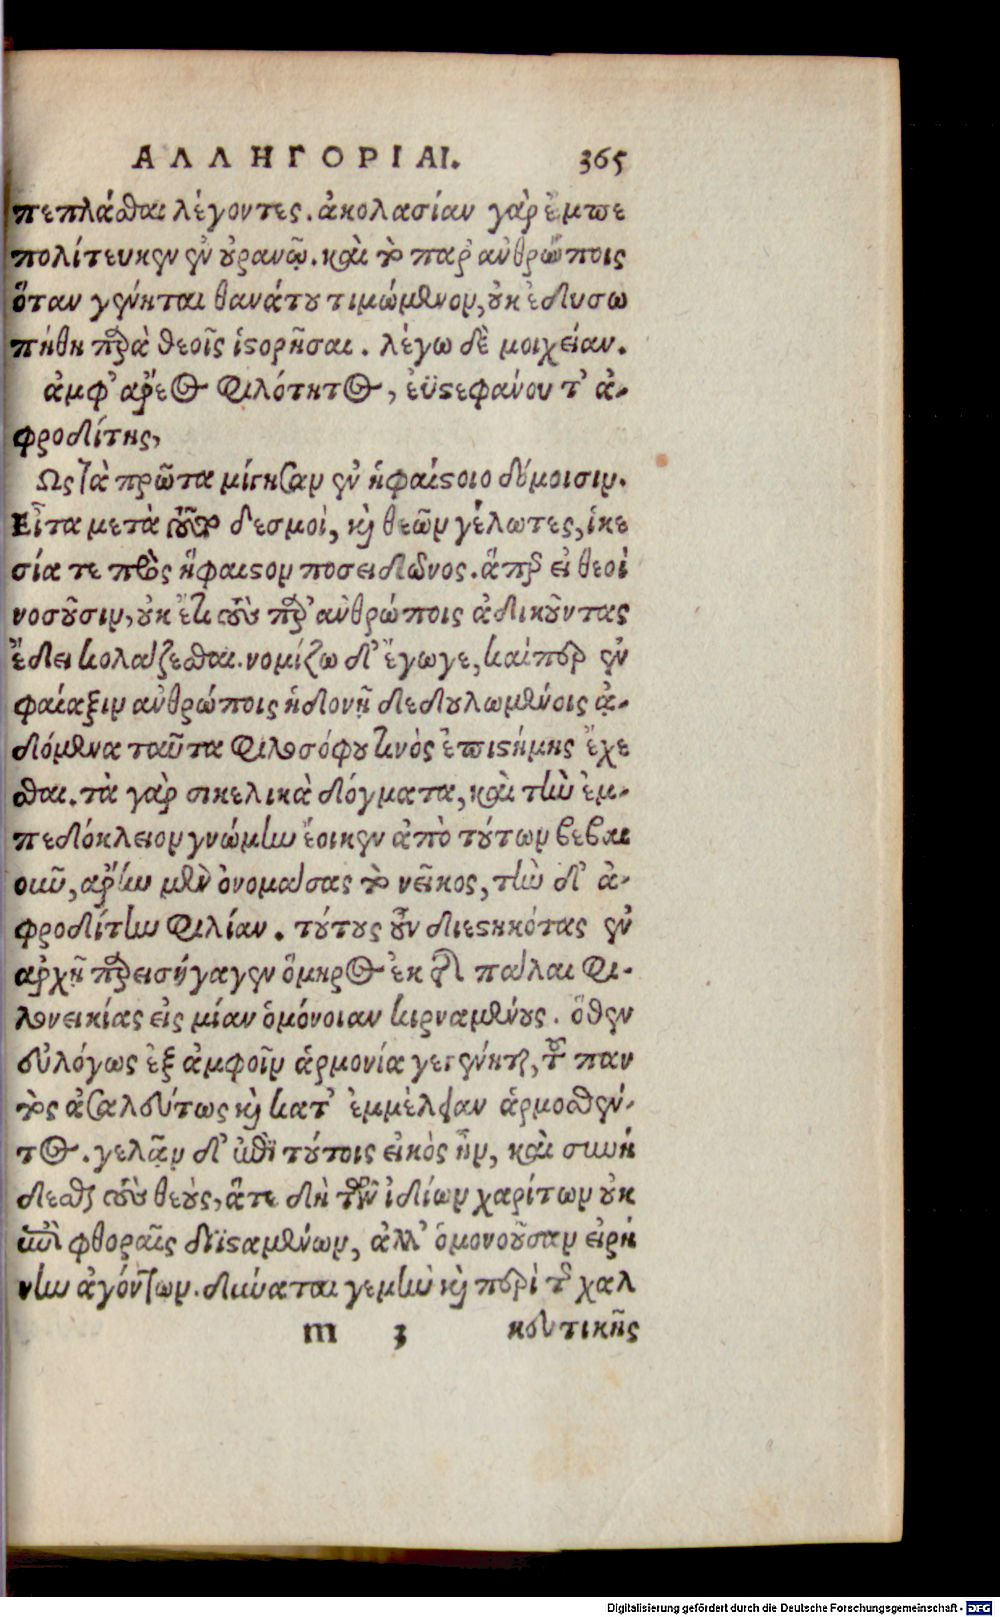 ΑΛΛΗΓΟΡΙΑΙ. 365
πεπλάσθαι λέγοντες. ἀκολασίαν γὰρ ἐμπε
πολίτευκεν ἐν οὐρανῷ. καὶ τὸ παρ' ἀνθρώποις
ὅταν γένηται θανάτου τιμώμενον, οὐκ ἐδυσω
πήθη παρὰ θεοῖς ἱστορῆσαι. λέγω δὲ μοιχείαν.
ἀμφ' ἄρεος φιλότητος, ἐϋστεφάνου τ' ἀ-
φροδίτης,
Ως τὰ πρῶτα μίγησαν ἐν ἡφαίστοιο δόμοισιν.
Εἶτα μετὰ τοῦτο δεσμοὶ, καὶ θεῶν γέλωτες, ἱκε
σία τε πρὸς ἥφαιστον ποσειδῶνος. ἅπερ εἰ θεοὶ
νοσοῦσιν, οὐκ ἔτι τοὺς παρ' ἀνθρώποις ἀδικοῦντας
ἔδει κολάζεσθαι. νομίζω δ' ἔγωγε, καίπερ ἐν
φαίαξιν ἀνθρώποις ἡδονῇ δεδουλωμένοις ᾀ-
δόμενα ταῦτα φιλοσόφου τινὸς ἐπιστήμης ἔχε
σθαι. τὰ γὰρ σικελικὰ δόγματα, καὶ τὴν ἐμ-
πεδόκλειον γνώμην ἔοικεν ἀπὸ τούτων βεβαι
οῦν, ἄρην μὲν ὀνομάσας τὸ νεῖκος, τὴν δ' ἀ-
φροδίτην φιλίαν. τούτους οὖν διεστηκότας ἐν
ἀρχῇ παρεισήγαγεν ὅμηρος ἐκ τῆς πάλαι φι-
λονεικίας εἰς μίαν ὁμόνοιαν κιρναμένους. ὅθεν
εὐλόγως ἐξ ἀμφοῖν ἁρμονία γεγένηται, τοῦ παν
τὸς ἀσαλεύτως καὶ κατ' ἐμμέλειαν ἁρμοσθέν-
τος. γελᾷν δ' ἐπὶ τούτοις εἰκὸς ἦν, καὶ συνή
δεσθαι τοὺς θεοὺς, ἅτε δὴ τῶν ἰδίων χαρίτων οὐκ
ἐπὶ φθοραῖς διϊσταμένων, ἀλλ' ὁμονοοῦσαν εἰρή
νην ἀγόντων. δύναται γε μὴν καὶ περὶ τῆς χαλ
m 3 κευτικῆς
Digitalisierung gefördert durch die Deutsche Forschungsgemeinschaft - DFG